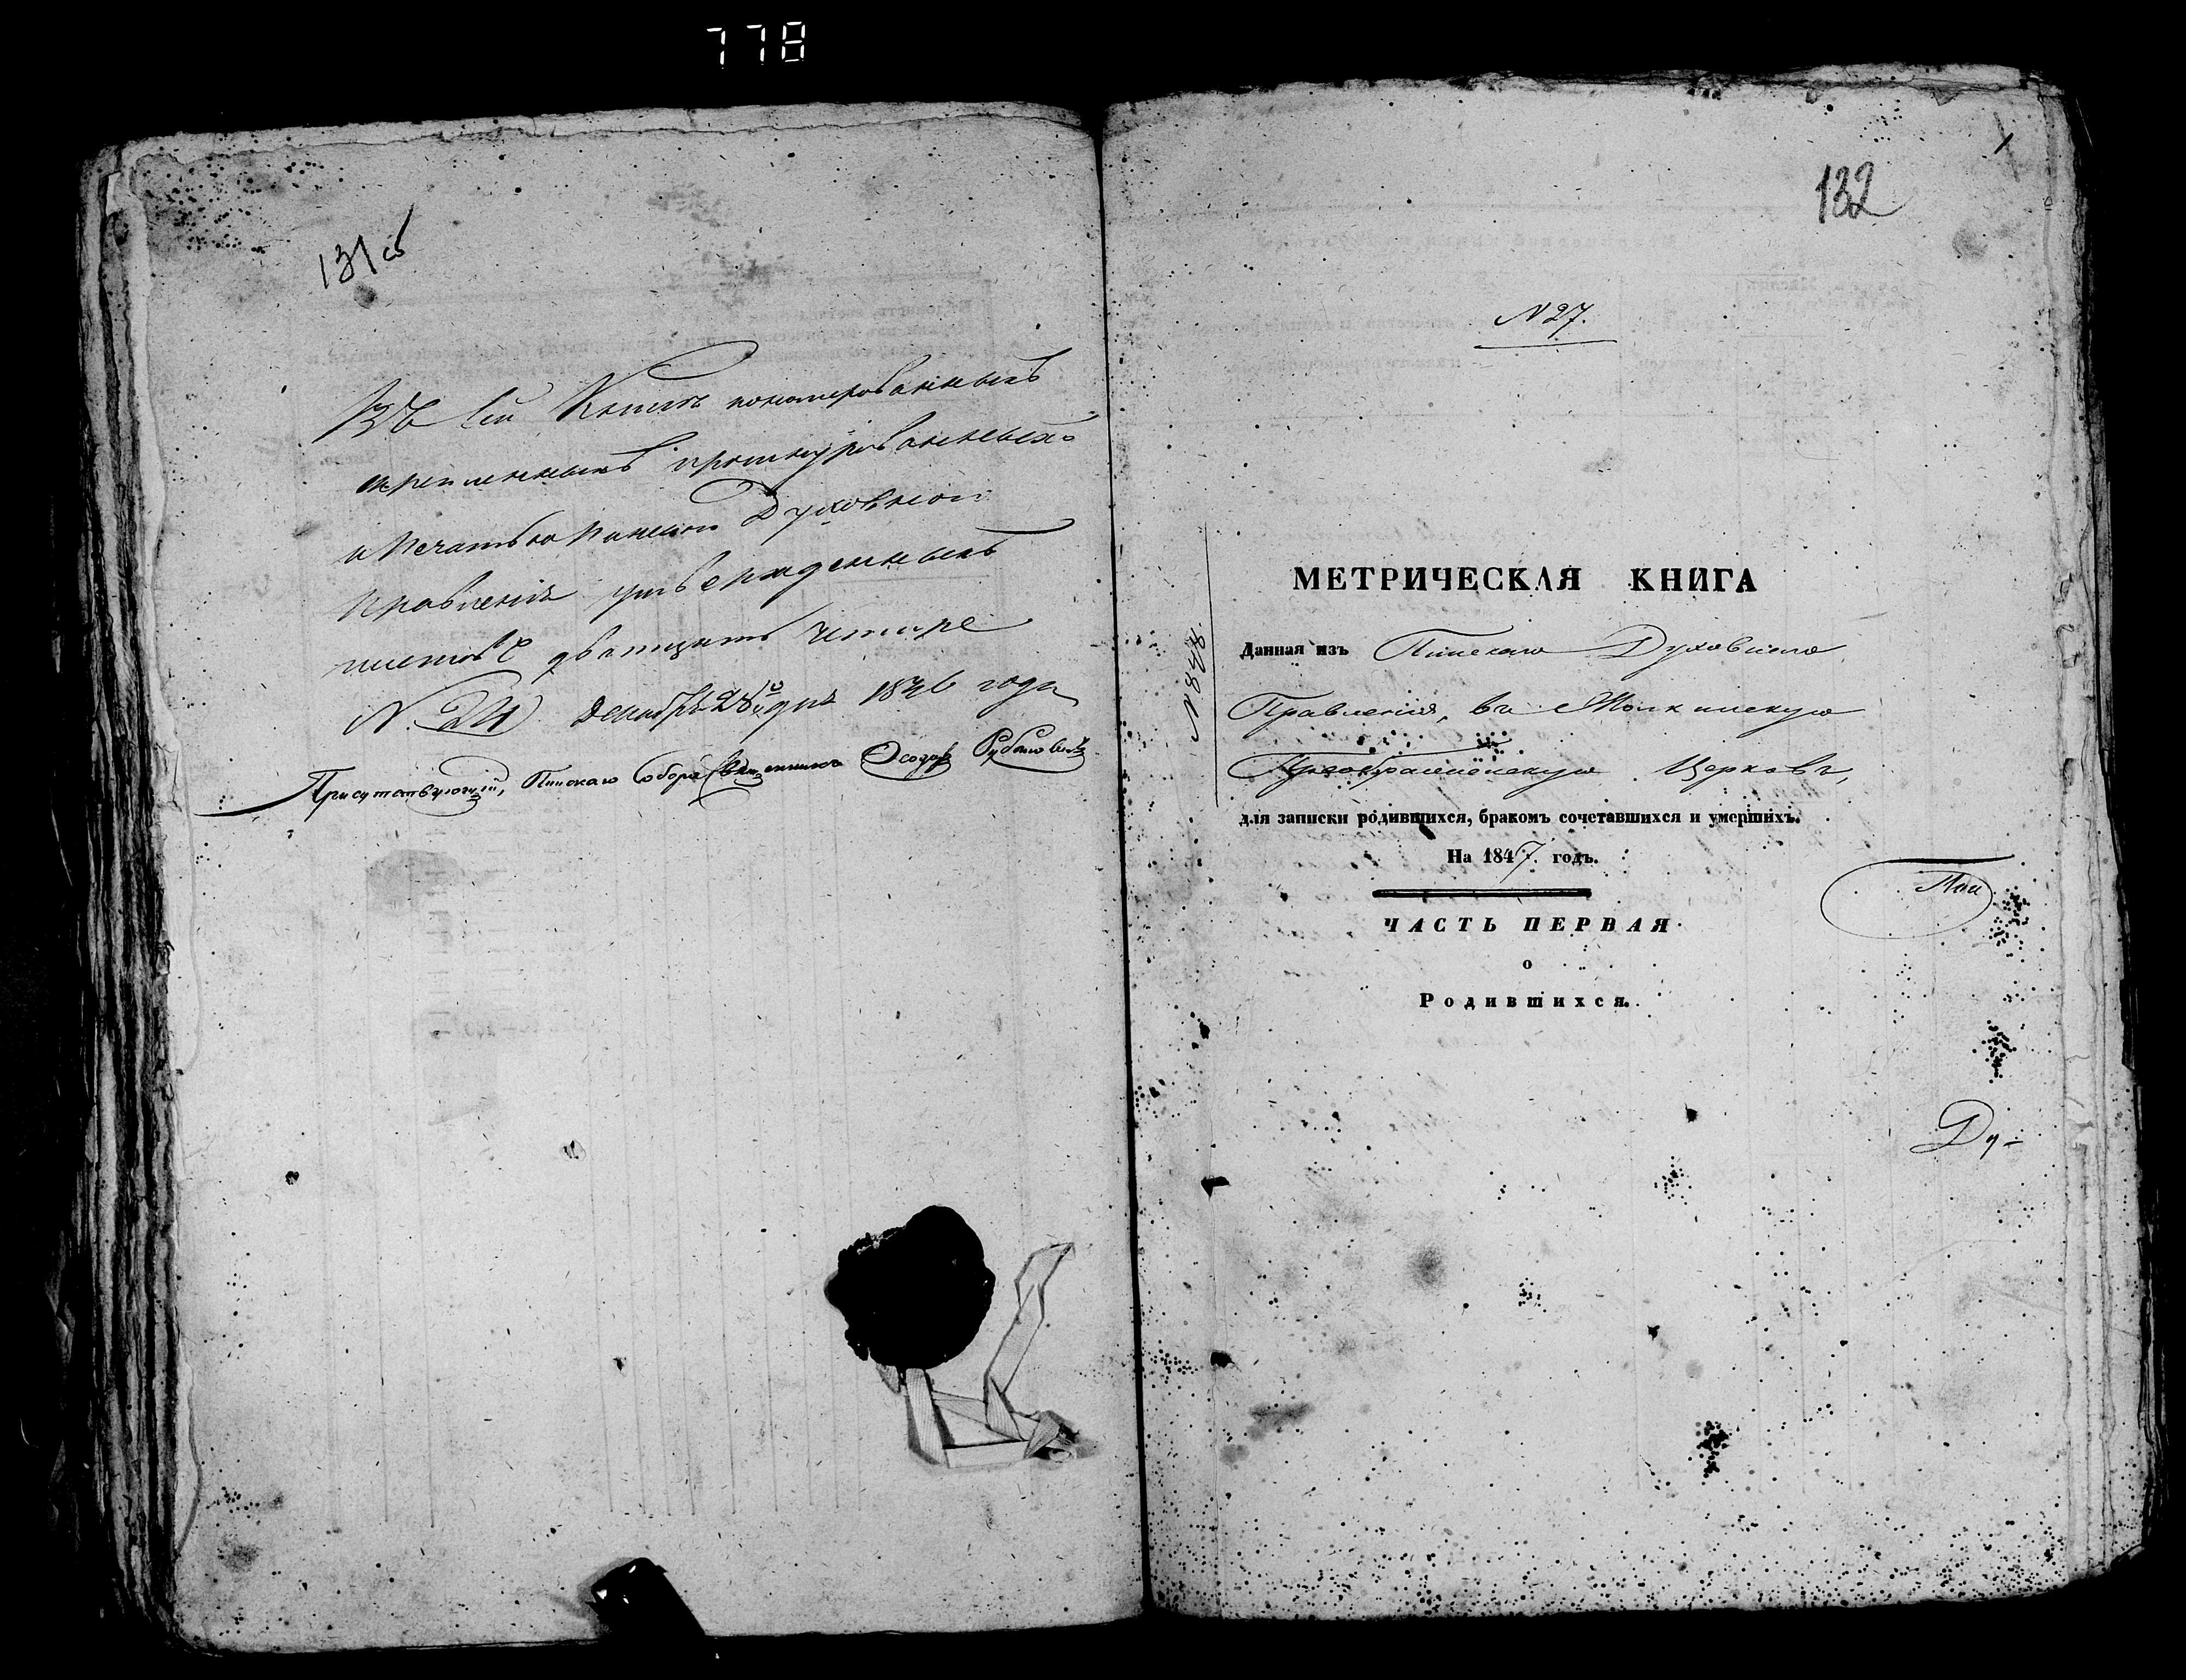 778
131 об
Въ сей Книгѣ нономерованныхъ
скрепленныхъ прошнурованныхъ
и печатью Пинскаго Духовнаго
Правленія утвержденныхъ
листовъ дватцать четыре
N. 24 Декабря 28го дня 1846 года
Присутствующій, Пинскаго Собора Священникъ Ѳеодоръ Рубановичъ
1
132
N 27.
N 1828.
МЕТРИЧЕСКАЯ КНИГА
Данная изъ Пинскаго Духовнаго
Правленія, въ
Преображенскую Церковь,
для записки родившихся, бракомъ сочетавшихся и умершихъ.
На 1847. годъ.
ЧАСТЬ ПЕРВАЯ
о
Родившихся.
Ду-